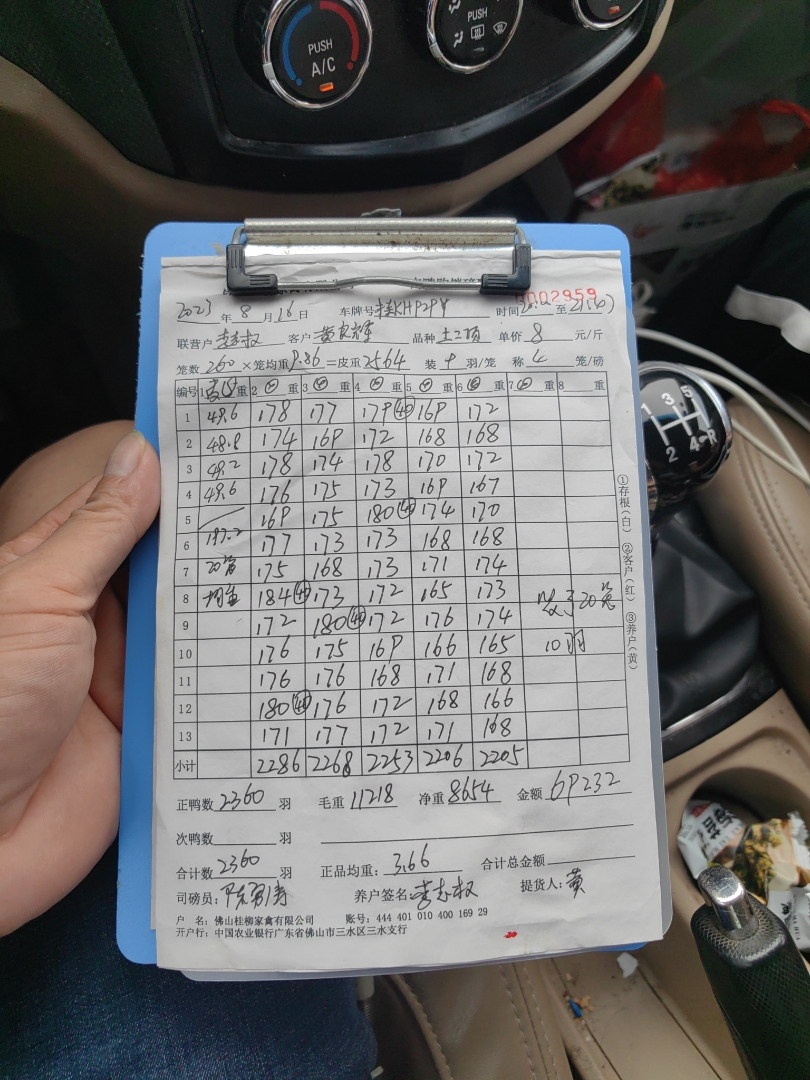 PUSH
A/C
PUSH
0002959
2023年8月16日 车牌号 桂KHP2P8 时间 至
联营户 客户 黄良辉 品种 土二项 单价 8 元/斤
笼数 260 ×笼均重 9.86 =皮重 2564 装 9 羽/笼 称 4 笼/磅
编号 1 重 2 重 3 重 4 重 5 重 6 重 7 重 8 重
1 49.6 178 177 179 (40) 169 172
2 48.8 174 169 172 168 168
3 49.2 178 174 178 170 172
4 49.6 176 175 173 169 167
5 169 175 180 (40) 174 170
6 197.2 177 173 173 168 168
7 20笼 175 168 173 171 174
8 均重 184 (40) 173 172 165 173
9 172 180 (40) 172 176 174
10 176 175 169 166 165
11 176 176 168 171 168
12 180 (40) 176 172 168 166
13 171 177 172 171 168
小计 2286 2268 2253 2206 2205
20笼
10羽
①存根(白) ②客户(红) ③养户(黄)
正鸭数 2360 羽 毛重 11218 净重 8654 金额 69232
次鸭数 羽
合计数 2360 羽 正品均重: 3.66 合计总金额
司磅员: 养户签名: 李志权 提货人: 黄
户 名: 佛山桂柳家禽有限公司 账号: 444 401 010 400 169 29
开户行: 中国农业银行广东省佛山市三水区三水支行
1 3 5
2 4 R